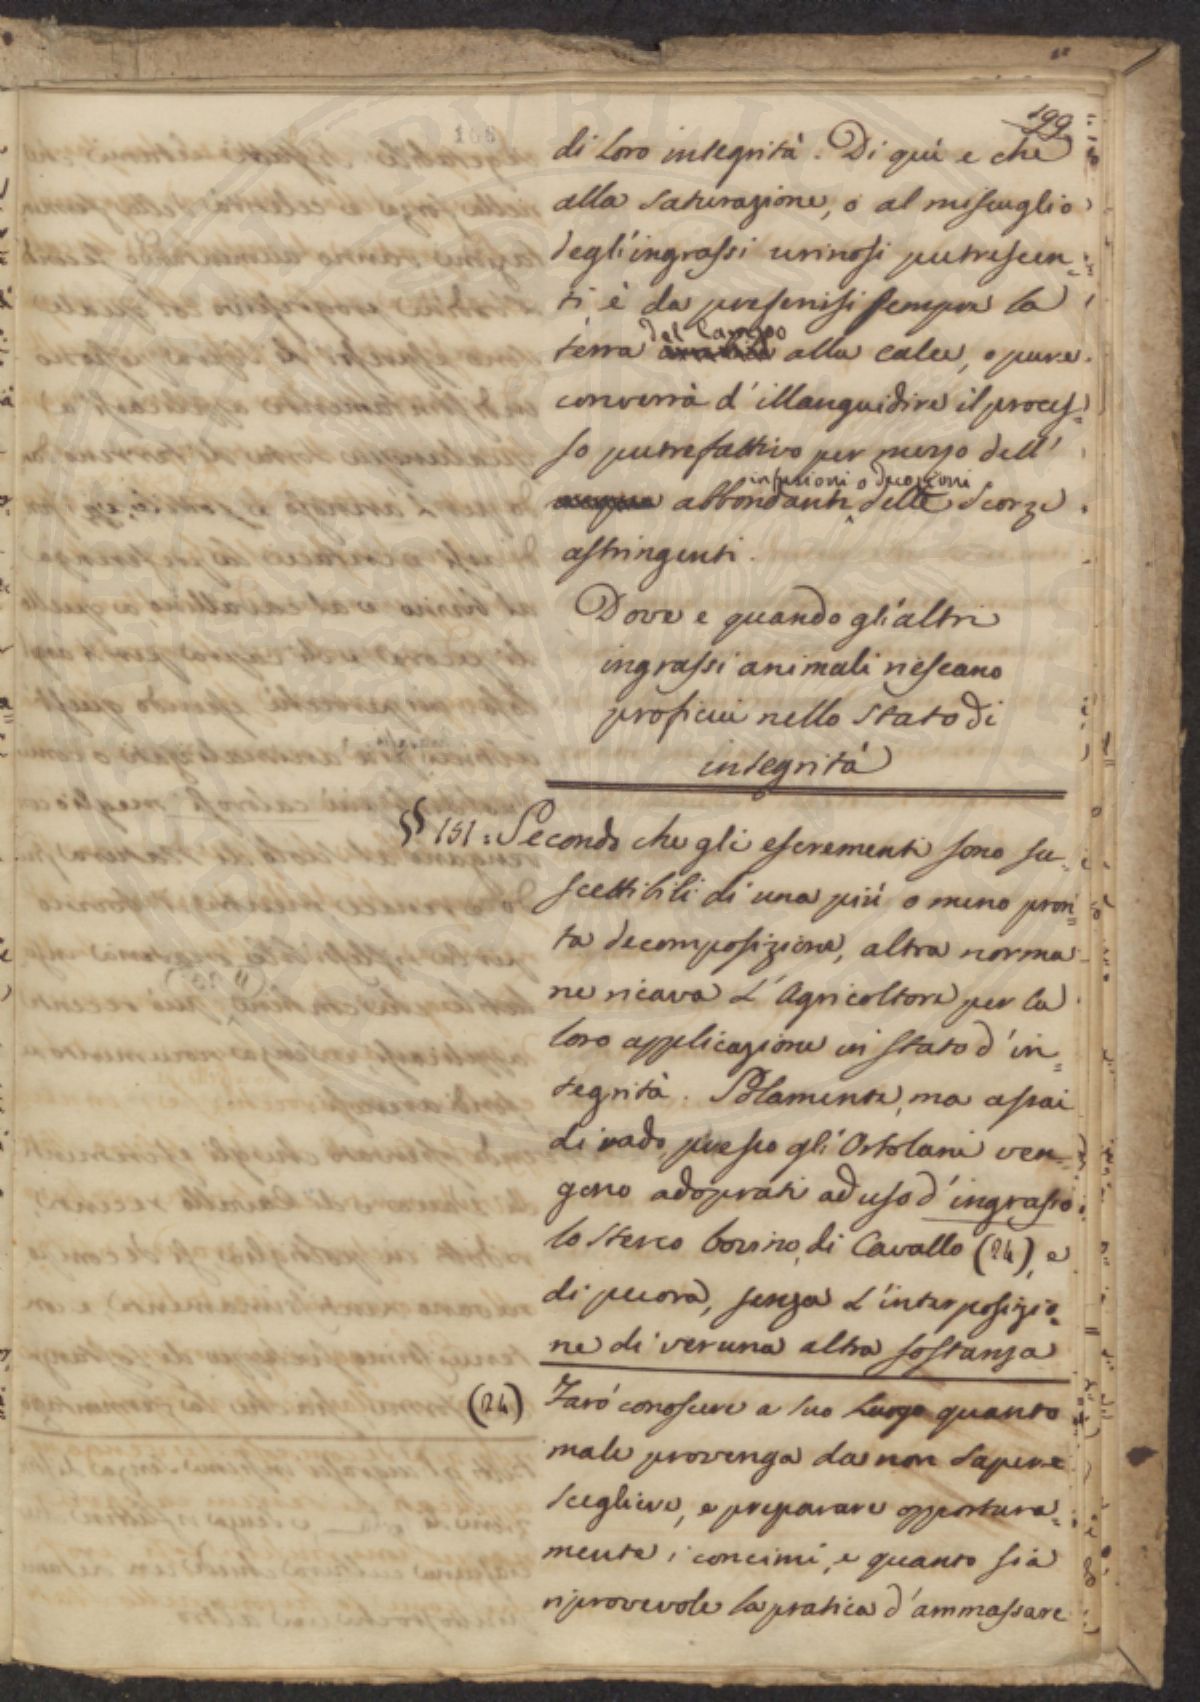 199
168
di loro integrità. Di quì e che
alla saturazione, o al miscuglio
degl'ingrassi urinosi putrescen=
ti è da preferirsi sempre la
del Campo
terra alla calce, o pure
converrà d'illanguidire il proces=
so putrefattivo per mezzo dell'
infusioni o decozioni
acqua abbondanti delle Scorze
astringenti.
Dove e quando gl'altri
ingrassi animali riescano
proficui nello stato di
integrità
§ 151 = Secondo che gli escrementi sono su=
scettibili di una più o meno pron=
ta decomposizione, altra norma
ne ricava l'Agricoltore per la
loro applicazione in stato d'in=
tegrità. Solamente, ma assai
di rado, presso gli Ortolani ven=
gono adoprati ad uso d'ingrasso
lo sterco bovino, di Cavallo (24), e
di pecora, senza l'interposizio=
ne di veruna altra sostanza
(24) Farò conoscere a suo luogo quanto
male provenga da non sapere
scegliere, e preparare opportuna=
mente i concimi, e quanto sia
riprovevole la pratica d'ammassare